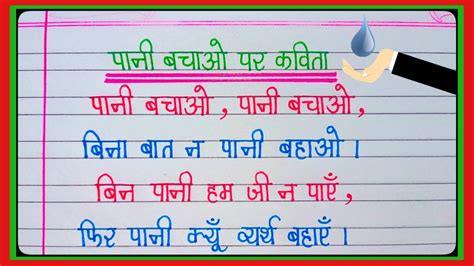 पानी बचाओ पर कविता
पानी बचाओ , पानी बचाओ ,
बिना बात न पानी बहाओ ।
बिन पानी हम जी न पाएँ ,
फिर पानी क्यूँ व्यर्थ बहाएँ ।